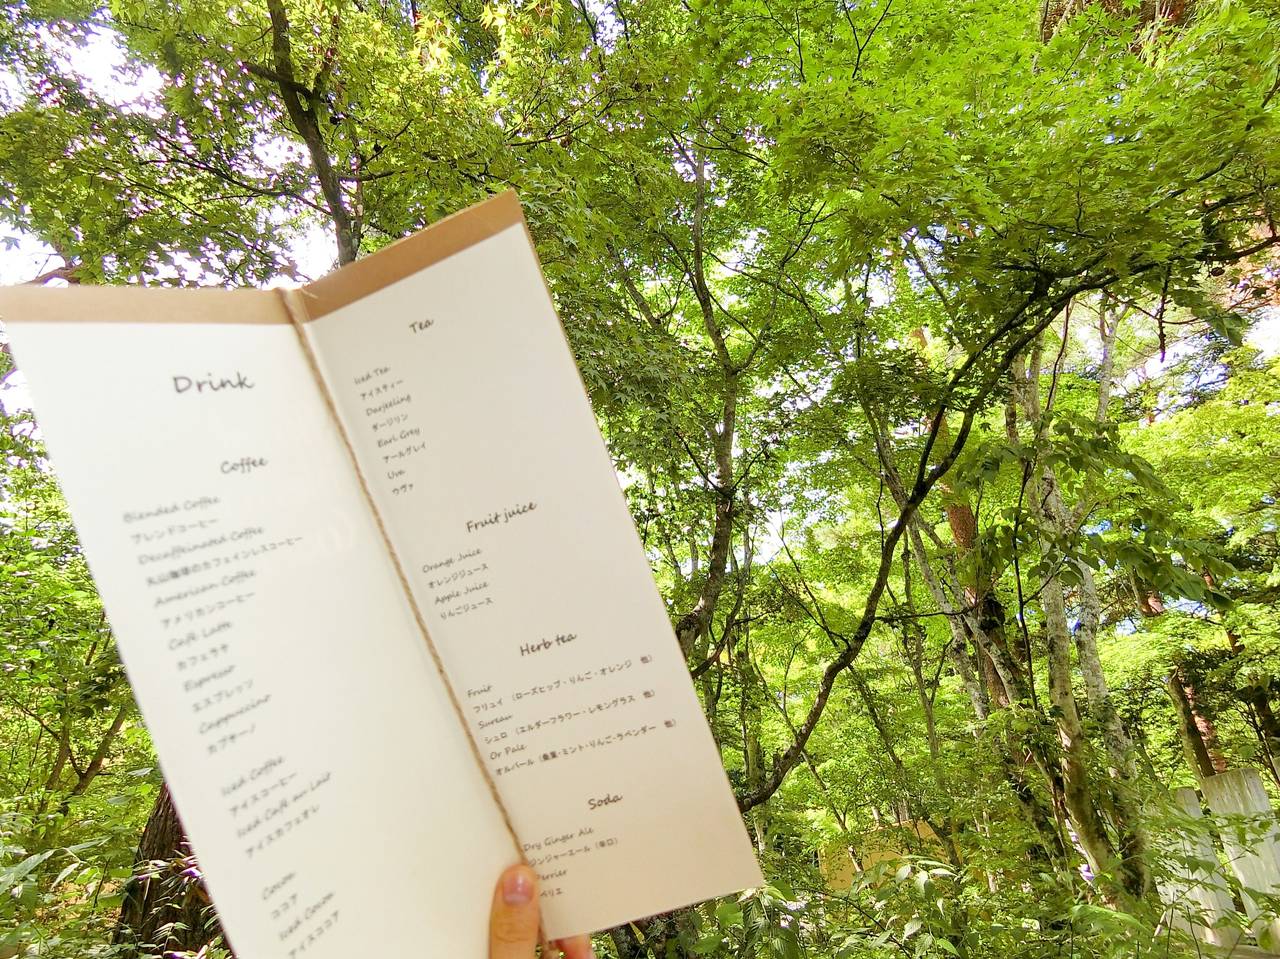 Drink
Coffee
Blended Coffee
ブレンドコーヒー
Decaffeinated Coffee
丸山珈琲のカフェインレスコーヒー
American Coffee
アメリカンコーヒー
Café Latte
カフェラテ
Espresso
エスプレッソ
Cappuccino
カプチーノ
Iced Coffee
アイスコーヒー
Iced Café au Lait
アイスカフェオレ
Cocoa
ココア
Iced Cocoa
アイスココア
Tea
Iced Tea
アイスティー
Darjeeling
ダージリン
Earl Grey
アールグレイ
Uva
ウヴァ
Fruit juice
Orange Juice
オレンジジュース
Apple Juice
りんごジュース
Herb tea
Fruit
フリュイ（ローズヒップ・りんご・オレンジ 他）
Sureau
シュロ（エルダーフラワー・レモングラス 他）
Or Pale
オルパール（桑葉・ミント・りんご・ラベンダー 他）
Soda
Dry Ginger Ale
ジンジャーエール（辛口）
Perrier
ペリエ